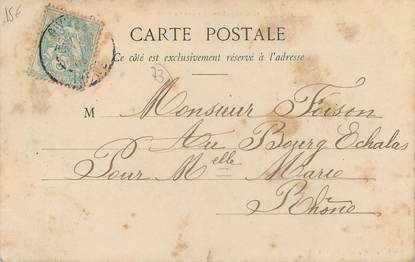 15€
CARTE POSTALE
Ce côté est exclusivement réservé à l'adresse
73
M Monsieur Foison
Au Bourg Echalas
Pour Melle Marie
Rhône